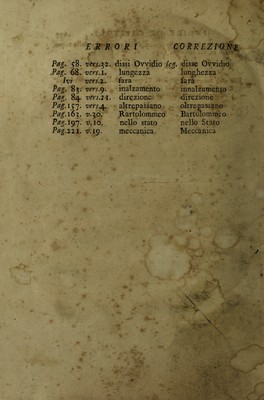 ERRORI CORREZIONE
Pag. 58. vers.32. dissi Ovvidio leg. disse Ovvidio
Pag. 68. vers.1. lungezza lunghezza
Ivi vers.2. fara farà
Pag. 83. vers.9. inalzamento innalzamento
Pag. 84. vers.21. direzione direzione
Pag.157. vers.4. altrepassano oltrepassano
Pag.163. v.30. Rartolommeo Bartolommeo
Pag.197. v.10. nello stato nello Stato
Pag.221. v.19. meccanica Meccanica